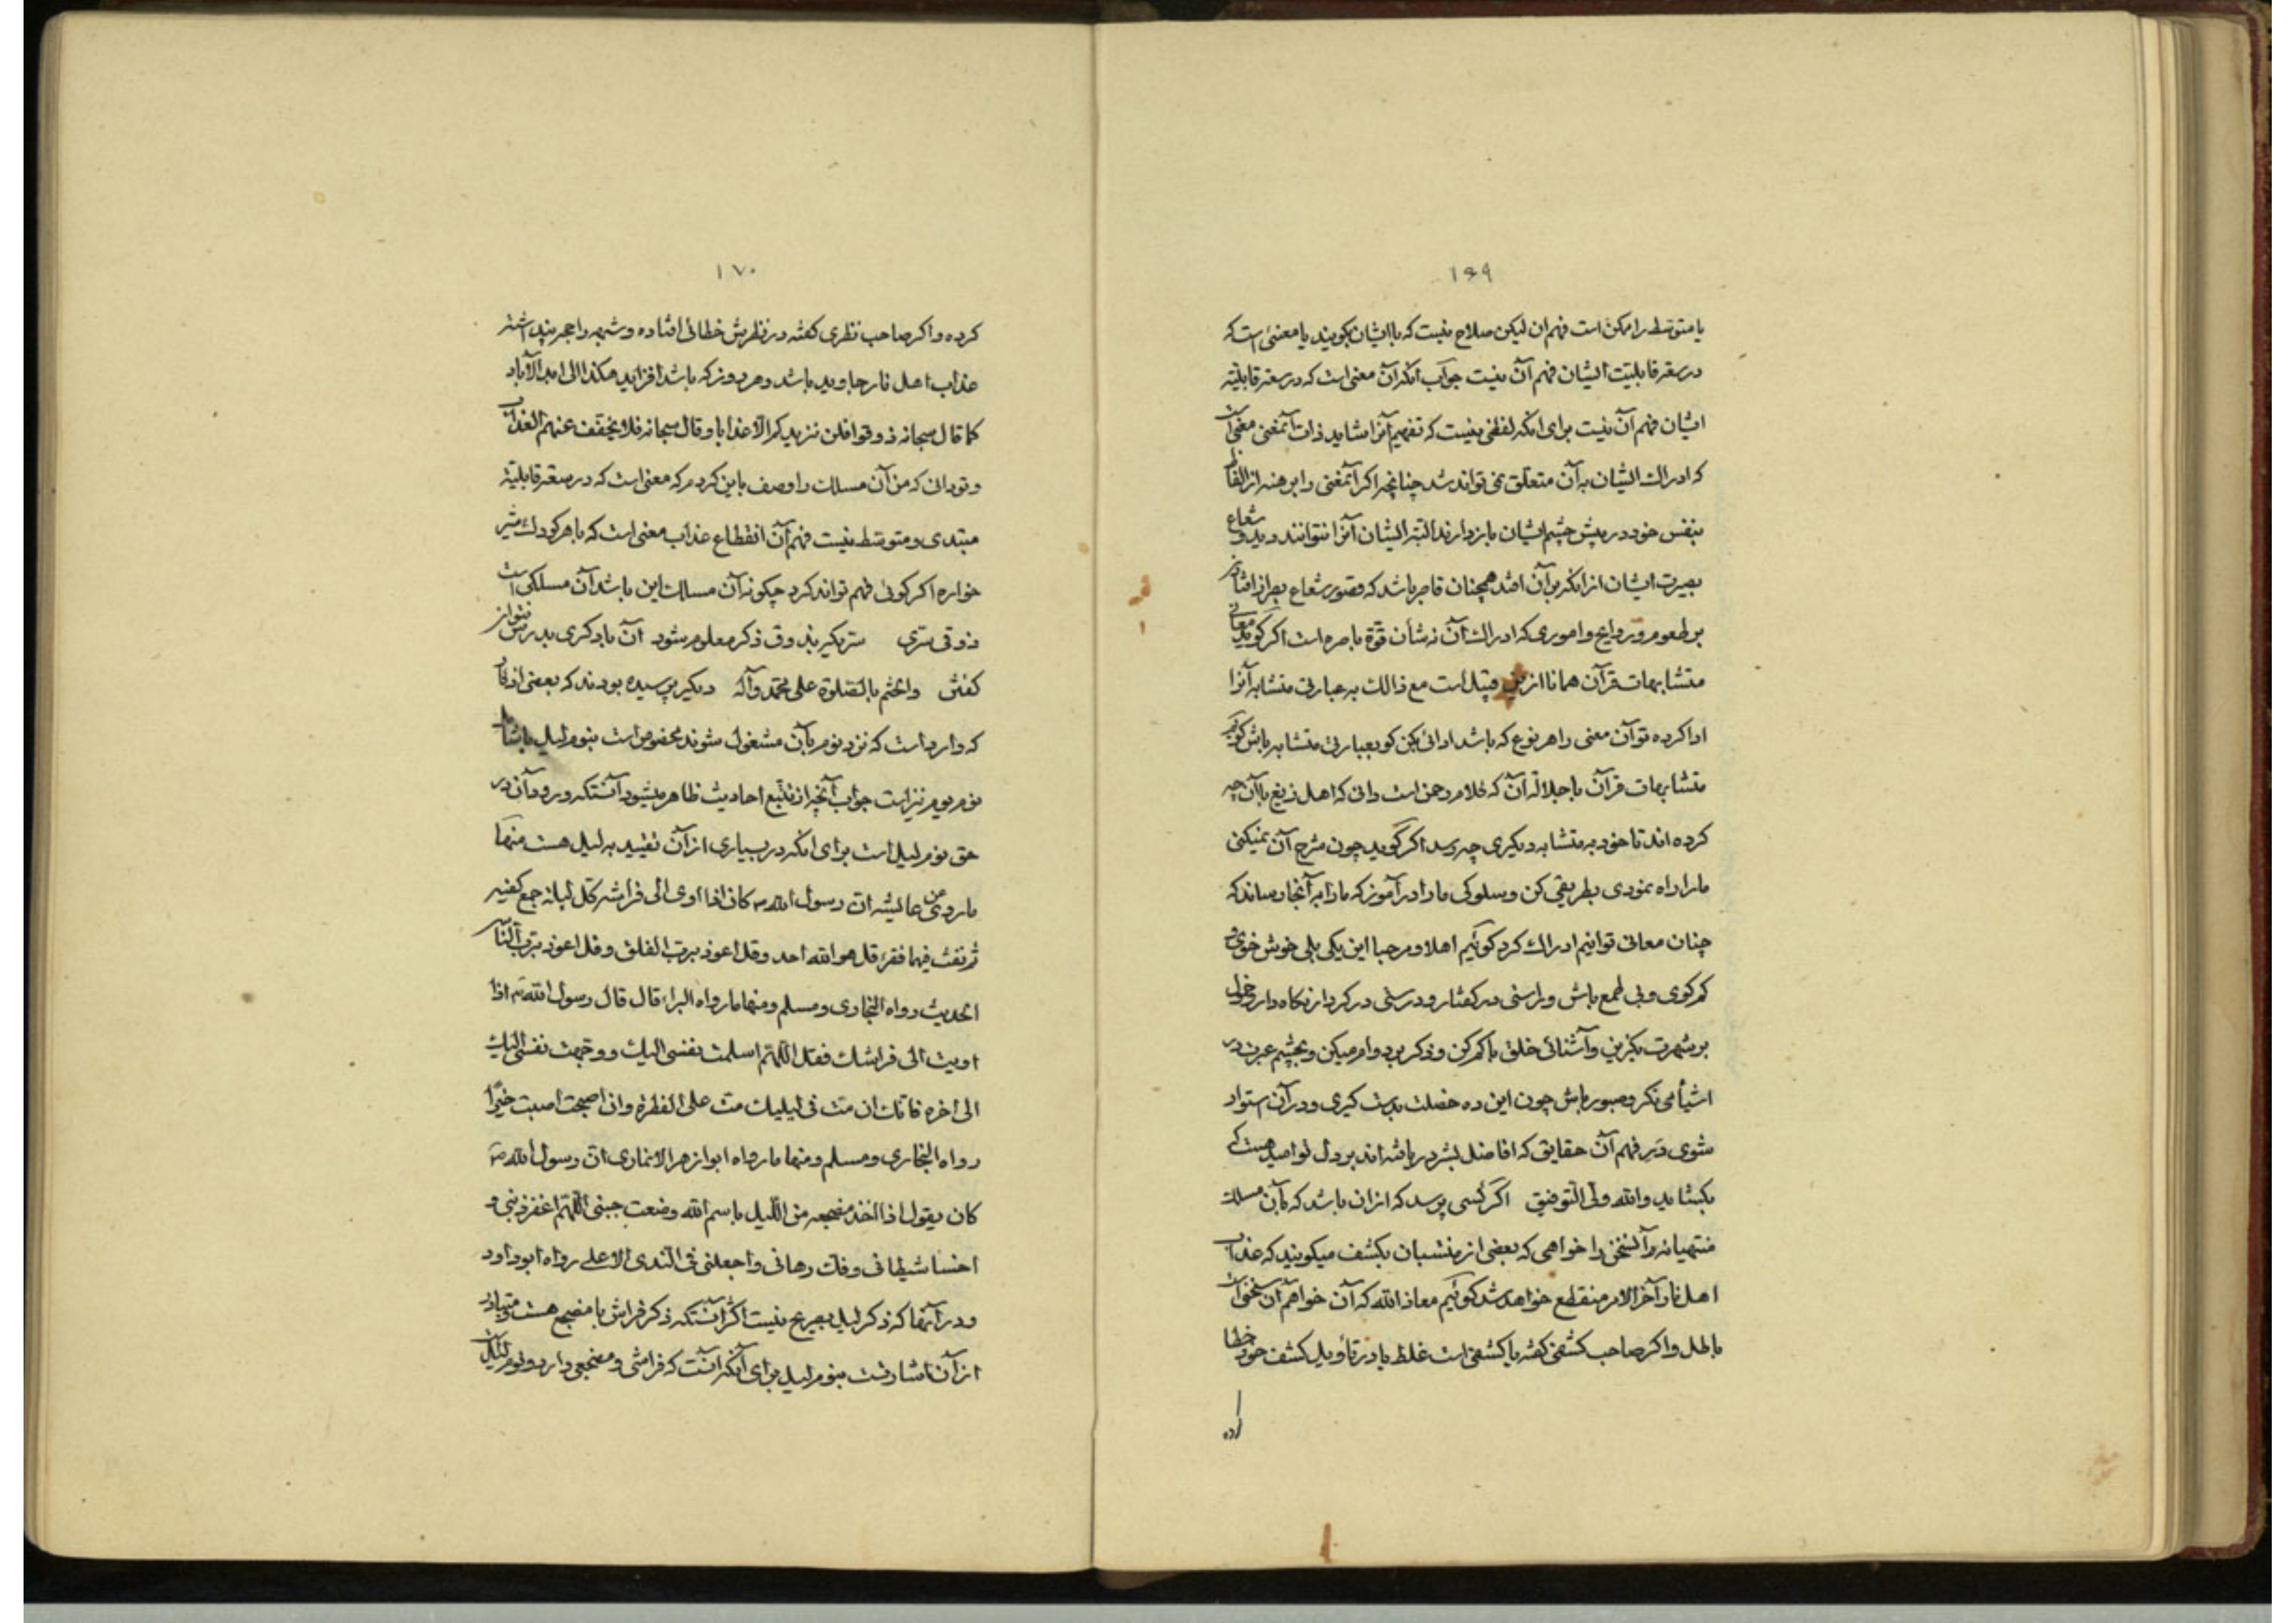 ۱۶۹
یا متوسط را ممکن است فهم ان لیکن صلاح نیست که با ایشان بکویند یا معنئ است که
در سعۀ قابلیّت ایشان فهم آن نیست جوآب انکه آن معنی است که در سعۀ قابلیّة
ایشان فهم آن نیست برای انکه لفظی نیست که تفهیم آنرا شاید ذات آنمعنی معنی است
که ادراك ایشان به آن متعلق نمی تواند شد چنانچه اکر آنمعنی را برهنه از الفاظ
بنفس خود در پیش چشم ایشان باز دارند البتّه ایشان آنرا نتوانند دید و شعاع
بصیرت ایشان از انکه بر آن افتد همچنان قاصر باشد که قصور شعاع بصر از افتادن
بر طعوم و روایح و اموری که ادراك آن نه شأن قوّة باصره است اکر کوید معانی
متشابهات قرآن همانا از این قبیل است مع ذالك به عبارتی متشابه آنرا
ادا کرده تو آن معنی را هر نوع که باشد ادائی بکن کو بعبارتی متشابه باش کوئیم
متشابهات قرآن با جلالة آن که کلام رحمن است دانی که اهل زیغ با آن چه
کرده اند تا خود به متشابه دیکری چه رسد اکر کوید چون شرح آن نمیکنی
مارا راه نمودی بطریقی کن و سلوکی مارا در آموز که مارا به آنجا رساند که
چنان معانی توانیم ادراك کرد کوئیم اهلا و مرحبا این یکی بلی خوش خوی
کم کوی و بی طمع باش و راستی در کفتار و درستی در کردار نکاه دار و خمول
بر شهرت بکزین و آشنائی خلق با کم کن و ذکر بر دوام میکن و بچشم عبرت در
اشیأ می نکر و صبور باش چون این ده خصلت بدست کیری و در آن استوار
شوی دَرِ فهم آن حقایق که افاضل بشر دریافته اند بر دل تو امید هست که
بکشاید والله ولیّ التوفیق اکر کسی پرسد که از ان باشد که بآن مسلك
منتهیانه آنسخن را خواهی که بعضی از منتسبان بکشف میکویند که عذاب
اهل نار آخر الامر منقطع خواهد شد کوئیم معاذ الله که آن خواهم آن سخنی است
باطل و اکر صاحب کشفی کفته یا کشفی است غلط یا در تأویل کشف خود خطا
کرده
۱۷۰
کرده و اکر صاحب نظری کفته در نظرش خطائی افتاده و شبهه را حجة پنداشته
عذاب اهل نار جاوید باشد و هر روز که باشد افزاید هکذا الی ابد الآباد
کما قال سبحانه ذوقوا فلن نزیدکم الّا عذابا و قال سبحانه فلا یخفّف عنهم العذاب
و تو دانی که من آن مسلك را وصف باین کردم که معنی است که در سعۀ قابلیّة
مبتدی و متوسّط نیست فهم آن انقطاع عذاب معنی است که با هر کودك شیر
خواره اکر کوئی فهم تواند کرد چکونه آن مسلك این باشد آن مسلکی است
ذوقی سرّی سرّ بکیرند و ق ذکر معلوم شود آن با دکری بدرس نتوان
کفتن و الختم بالصّلوة علی محمّد وآله دیکر پرسیده بودند که بعضی اذکار
که وارد است که نزد نوم بآن مشغول شوند مخصوص است بنوم لیل یا شامل
نوم یوم نیز است جواب آنچه از تتبع احادیث ظاهر میشود آنستکه ورود آن در
حق نوم لیل است برای انکه در بسیاری از آن تقیید به لیل هست منها
ما روی عن عایشه انّ رسول الله ص کان اذا اوی الی فراشه کلّ لیلة جمع کفیه
ثم نفث فیهما فقرء قل هو الله احد و قل اعوذ بربّ الفلق و قل اعوذ بربّ النّاس
الحدیث رواه البخاری و مسلم و منها ما رواه البراء قال قال رسول الله ص اذا
اویت الی فراشك فقل اللّهمّ اسلمت نفسی الیك و وجّهت نفسی الیك
الی اخره فانّك ان متّ فی لیلیك متّ علی الفطرة و ان اصبحت اصبت خیرًا
رواه البخاری و مسلم و منها ما رواه ابو ازهر الانماری انّ رسول الله ص
کان یقول اذا اخذ مضجعه من اللّیل باسم الله وضعت جنبی اللّهمّ اغفر ذنبی و
اخسا شیطانی و فك رهانی و اجعلنی فی النّدی الاعلی رواه ابوداود
و در آنها که ذکر لیل بصریح نیست اکثر آنستکه ذکر فراش یا مضجع هست و متبادر
از آن اشارتست بنوم لیل برای آنکه انست که فراشی و مضجعی دارد و نوم لیل